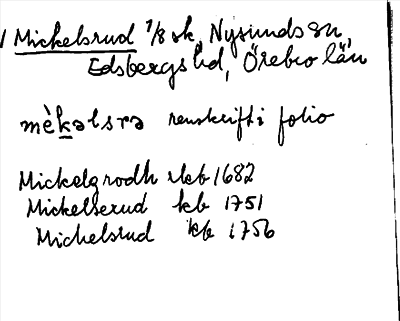 1 Mickelsrud 1/8 sk. Nysunds sn,
Edsbergs hd, Örebro län
mèkəlsrə renskrift i folio
Mickelgrodh rkb 1682
Mickelserud kb 1751
Mickelsrud kb 1756